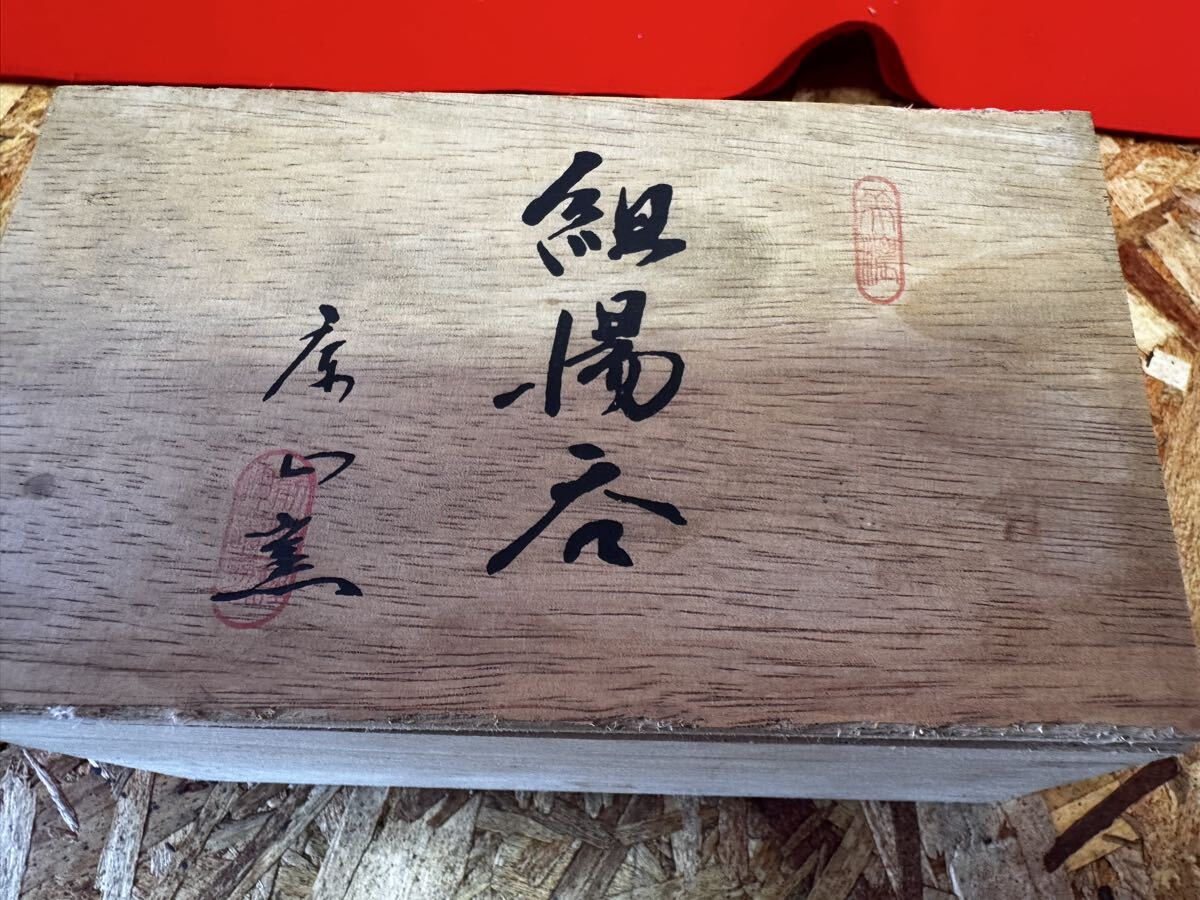 組湯呑
康山窯